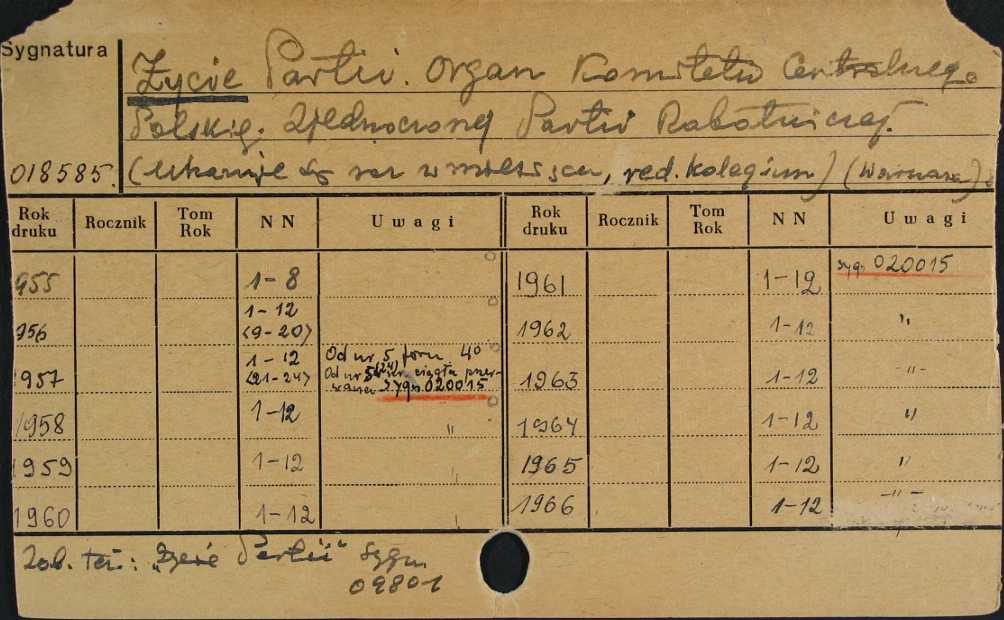 Sygnatura
Życie Partii. Organ Komitetu Centralnego
Polskiej Zjednoczonej Partii Robotniczej.
018585. (Ukazuje się raz w miesiącu, red. kolegium) (Warszawa)
Rok druku Rocznik Tom Rok NN Uwagi Rok druku Rocznik Tom Rok NN Uwagi
955 1-8 1961 1-12 sygn. 020015
956 1-12 (9-20) 1962 1-12 "
957 1-12 (21-24) Od nr 5 form. 4°
Od nr 5 ciągła
sygn. 020015 1963 1-12 -"-
1958 1-12 " 1964 1-12 "
1959 1-12 1965 1-12 "
1960 1-12 1966 1-12 -"-
Zob. też: „Życie Partii" Sygn.
09801